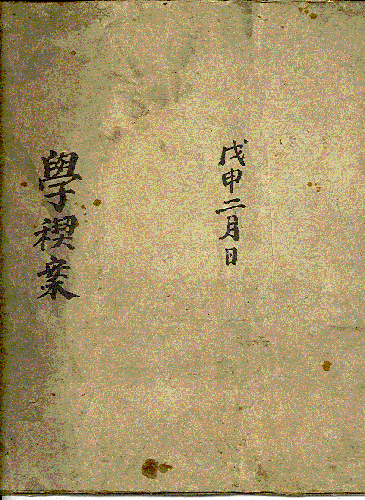 戊申二月日
學禊案